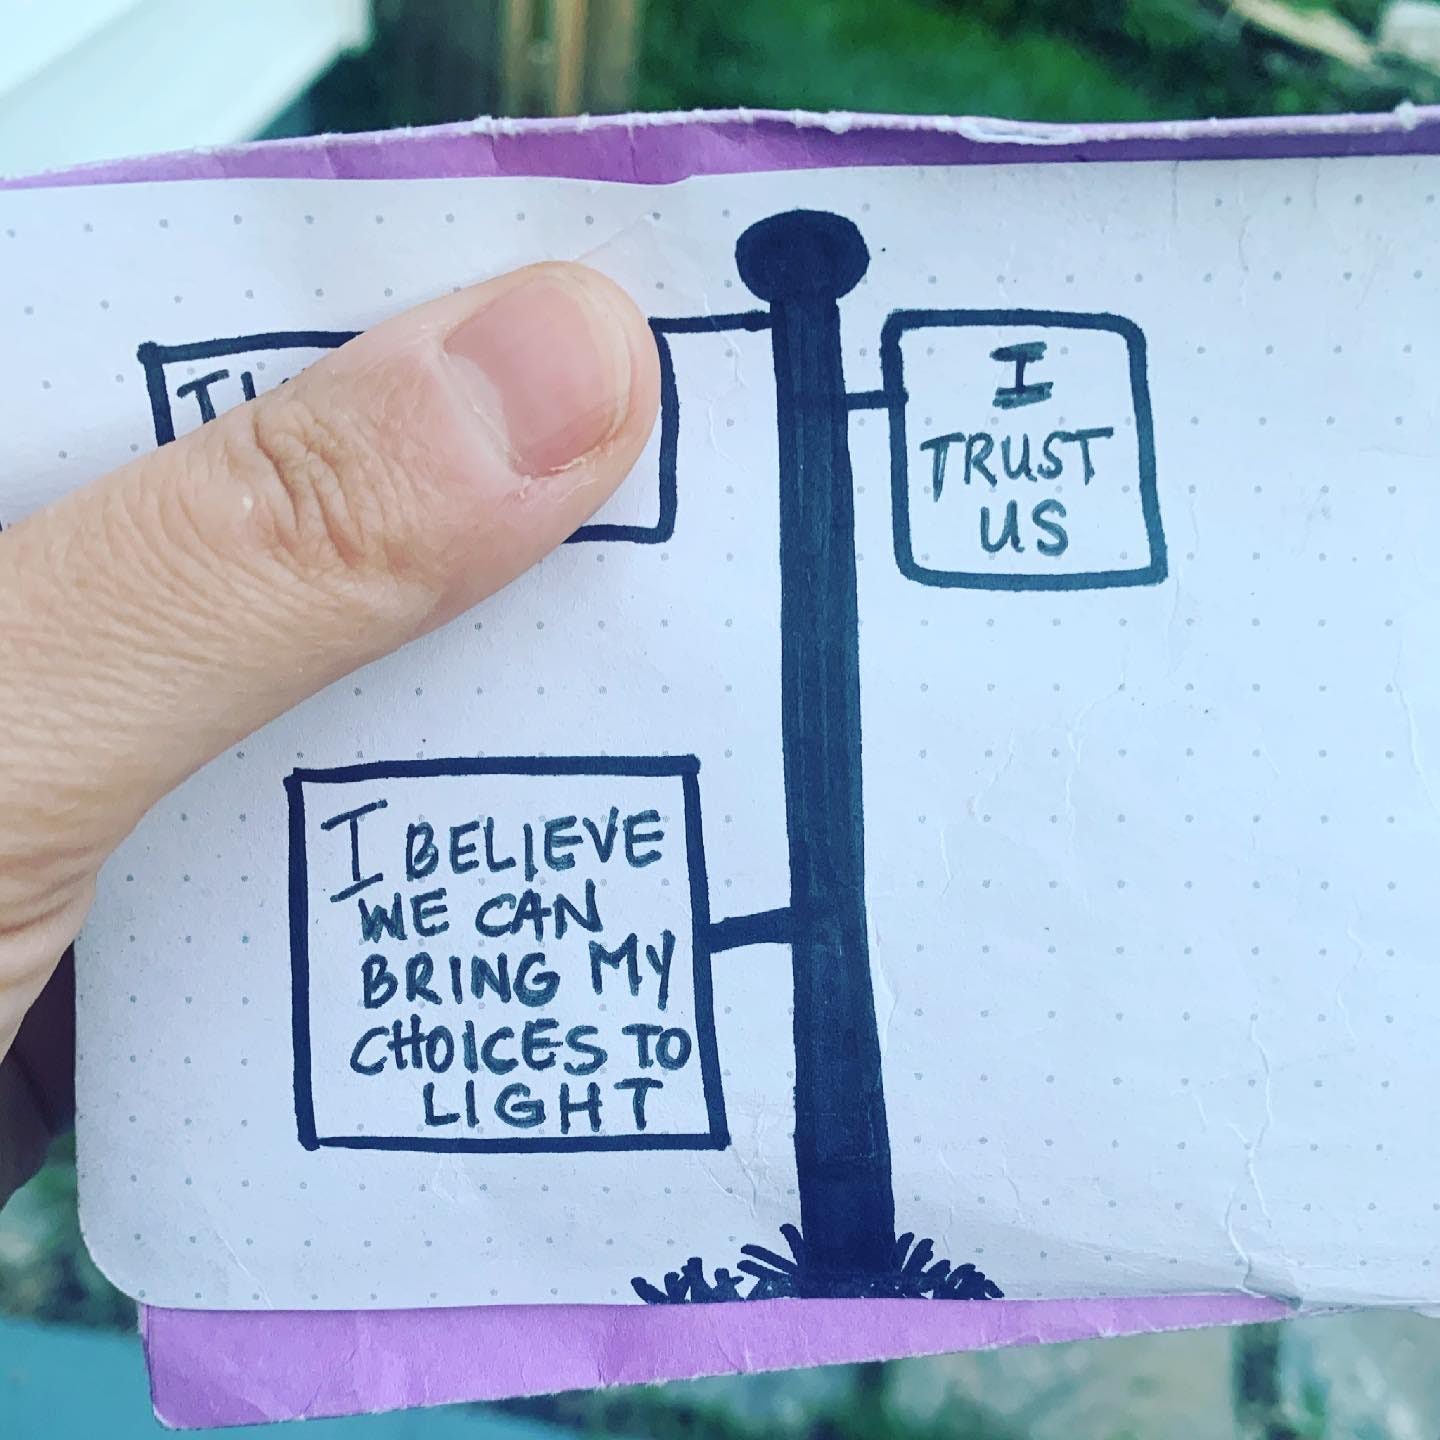 I
TRUST
US
I BELIEVE
WE CAN
BRING MY
CHOICES TO
LIGHT